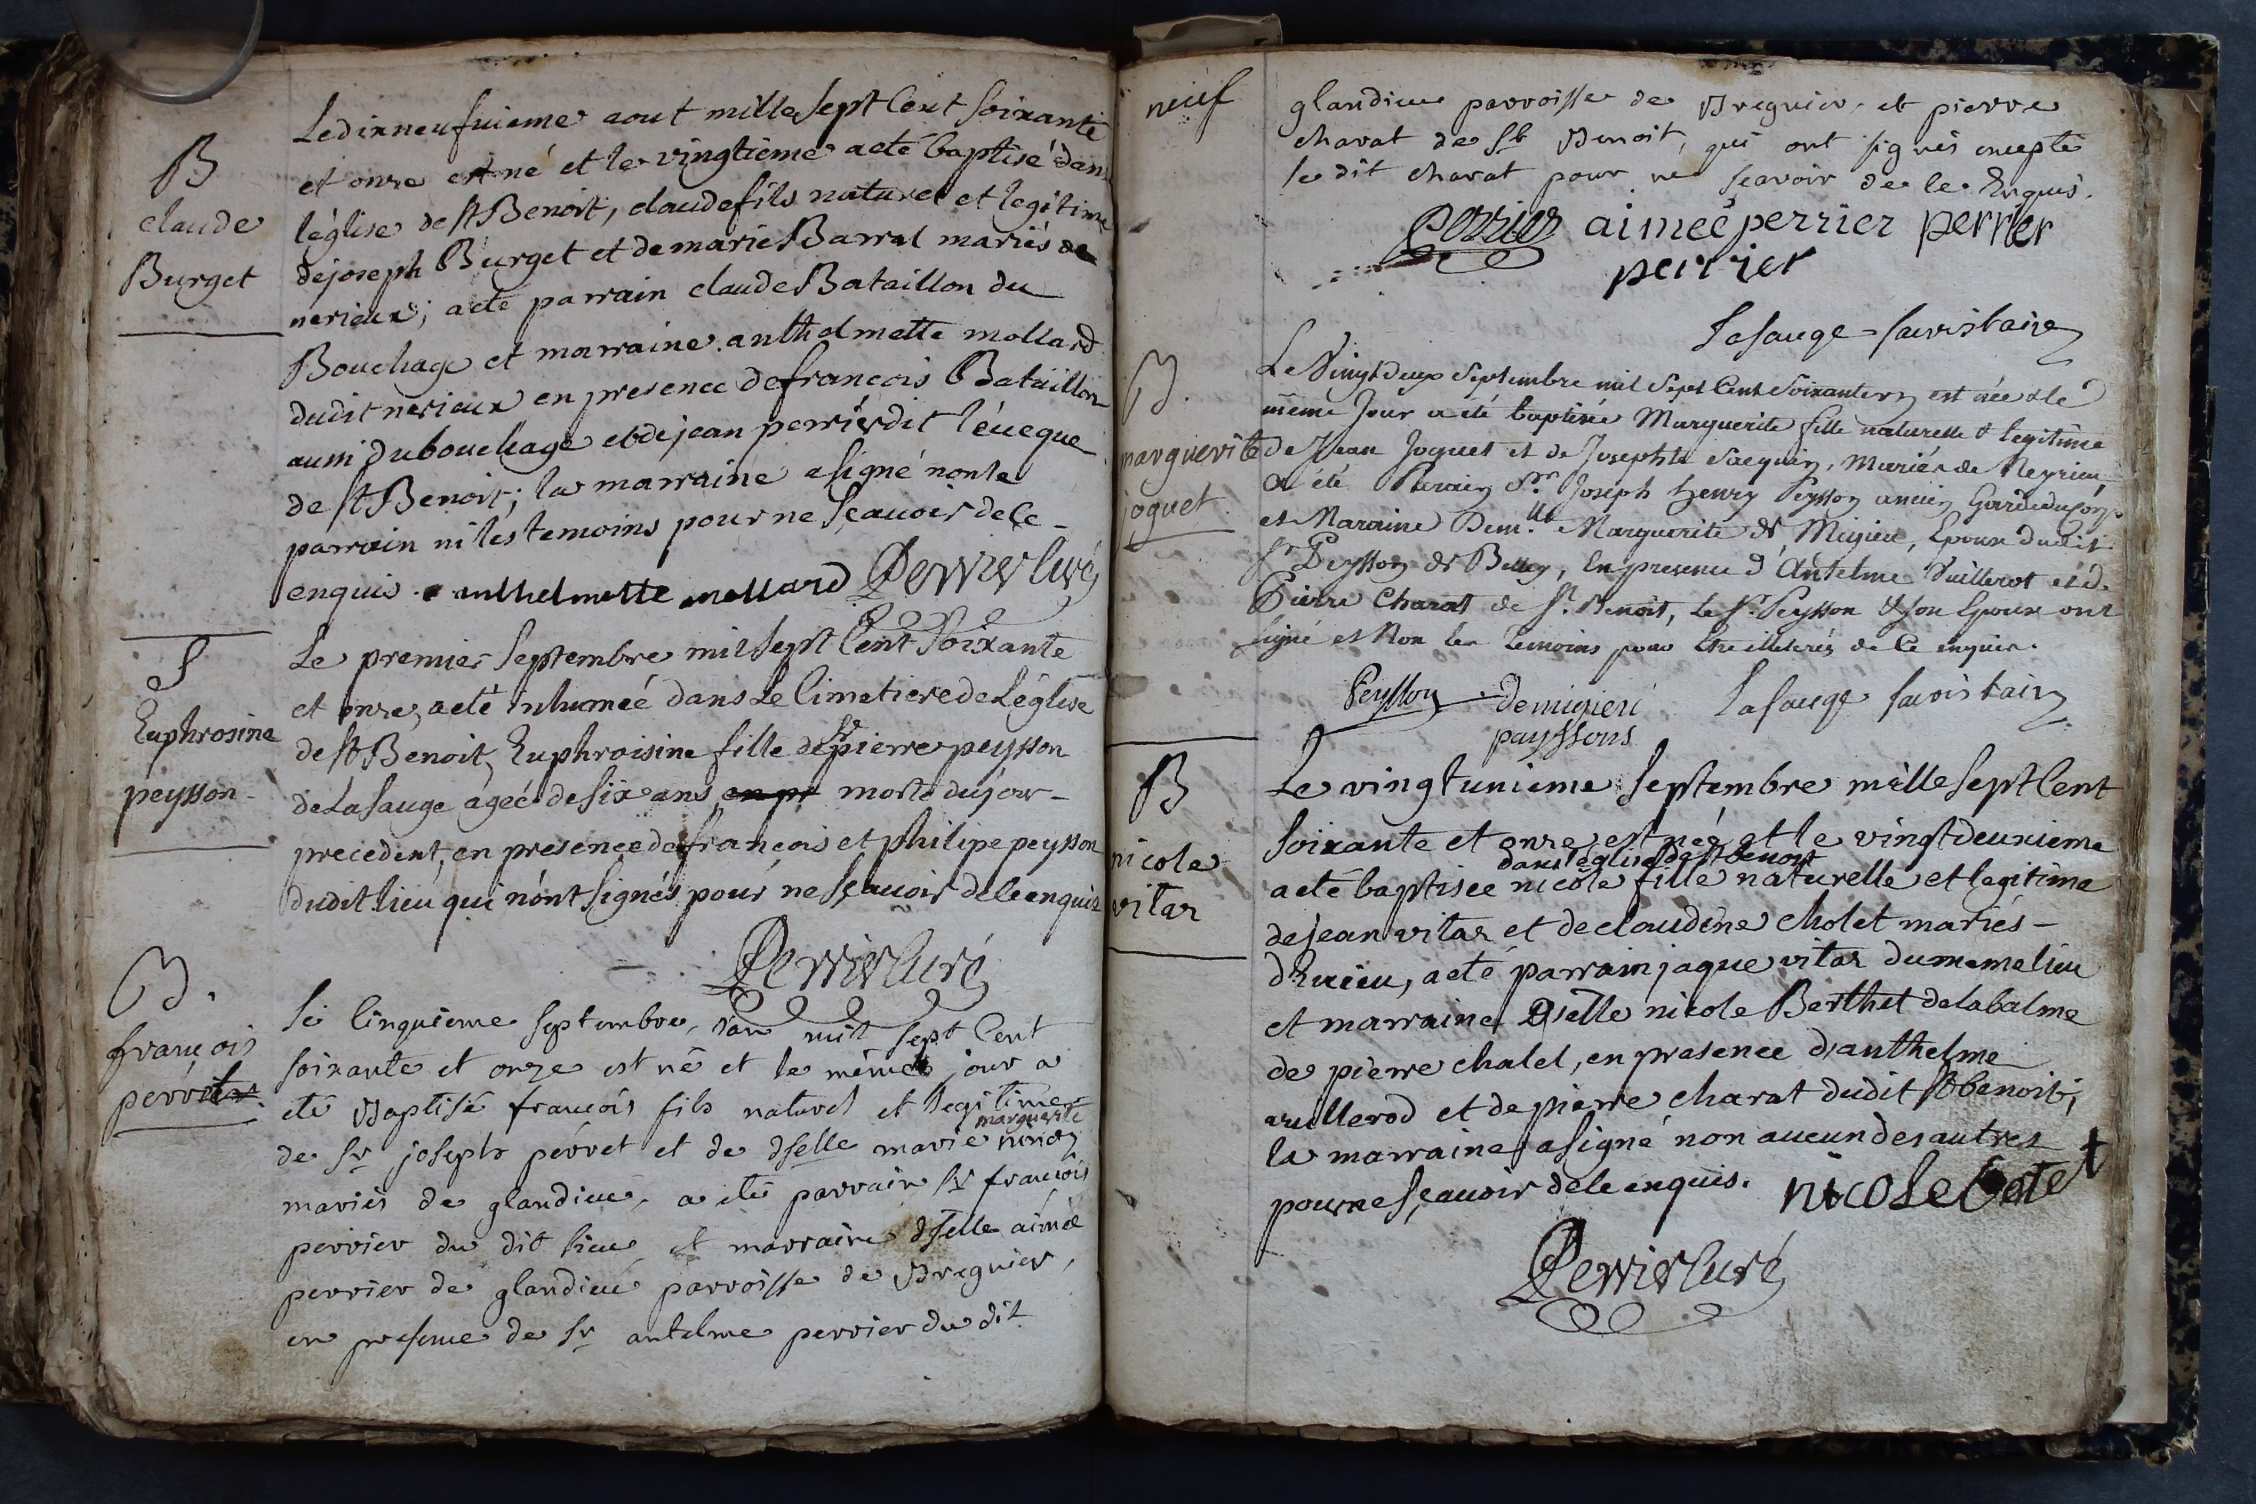 B
claude
Burget
Le dixneufuieme aout mille sept Cent soixante
et onze est né et le vingtieme a eté baptisé dans
l'église de st Benoit, claude fils naturel et legitime
de joseph Burget et de marie Barral mariés de
nerieux; a eté parrain claude Bataillon du
Bouchage et marraine anthelmette mollard
dudit nerieux en presence de francois Bataillon
aussi du bouchage et de jean perrier dit l'éueque
de st Benoit; la marraine a signé non le
parrain ni les temoins pour ne sçauoir de ce
enquis. anthelmette mollard Perrier Curé
S
Euphrosine
peysson
Le premier septembre mil sept Cent soixante
et onze, a eté inhumeé dans Le Cimetiere de L'église
de st Benoit, Euphroisine fille de sr pierre peysson
de La sauge ageé de six ans en pr morte du jour
precedent, en presence de françois et philipe peysson
dudit lieu qui n'ont signés pour ne sçauoir de le enquis
Perrier Curé
B.
françois
perret
Le Cinquieme septembre, l'an mil sept Cent
soixante et onze est né et le même jour a
eté Baptisé françois fils naturel et legitime
de sr joseph perret et de dselle marie marguerite
mariés de glandieu, a eté parrain sr françois
perrier du dit lieu et marraine dselle aimée
perrier de glandieu parroisse de Bregnier,
en presence de sr antelme perrier du dit
neuf
glandieu parroisse de Bregnier, et pierre
charat de st Benoit, qui ont signés excepté
le dit charat pour ne scavoir de le Enquis.
perrier aimeé perrier perrier
perrier
Lasauge
B.
marguerite
joguet
Le Vingtdeux septembre mil sept Cent soixante onze est née & le
même Jour a été baptisée Marguerite fille naturelle & legitime
de Jean Joguet et de Josephte Jacquin, mariés de Neyrieu,
a été Parain Sr. Joseph henry Peysson ancien Garde du Corps
et Maraine Demlle Marguerite de Migieu, Epouse dudit
Sr Peysson de Belley, En presence d'Antelme Vuillerot et de
Pierre Charat de St. Benoit, Le Sr. Peysson & son Epouse ont
signé et Non les temoins pour être illiterés de Ce enquis.
Peysson demigieu Lasauge
payssons
B
nicole
vitar
Le vingtunieme septembre mille sept Cent
soixante et onze est neé et le vingtdeuxieme
dans l'église de st benoit
a eté baptiseé nicole fille naturelle et legitime
de jean vitar et de claudine cholet mariés
d'Eurieu, a eté parrain jaque vitar du meme lieu
et marraine Dselle nicole Berthet de la balme
de pierre chatel, en presence d'anthelme
vuillerod et de pierre charat dudit st benoit;
la marraine a signé non aucun des autres
pour ne sçauoir de le enquis. nicole betet
Perrier Curé